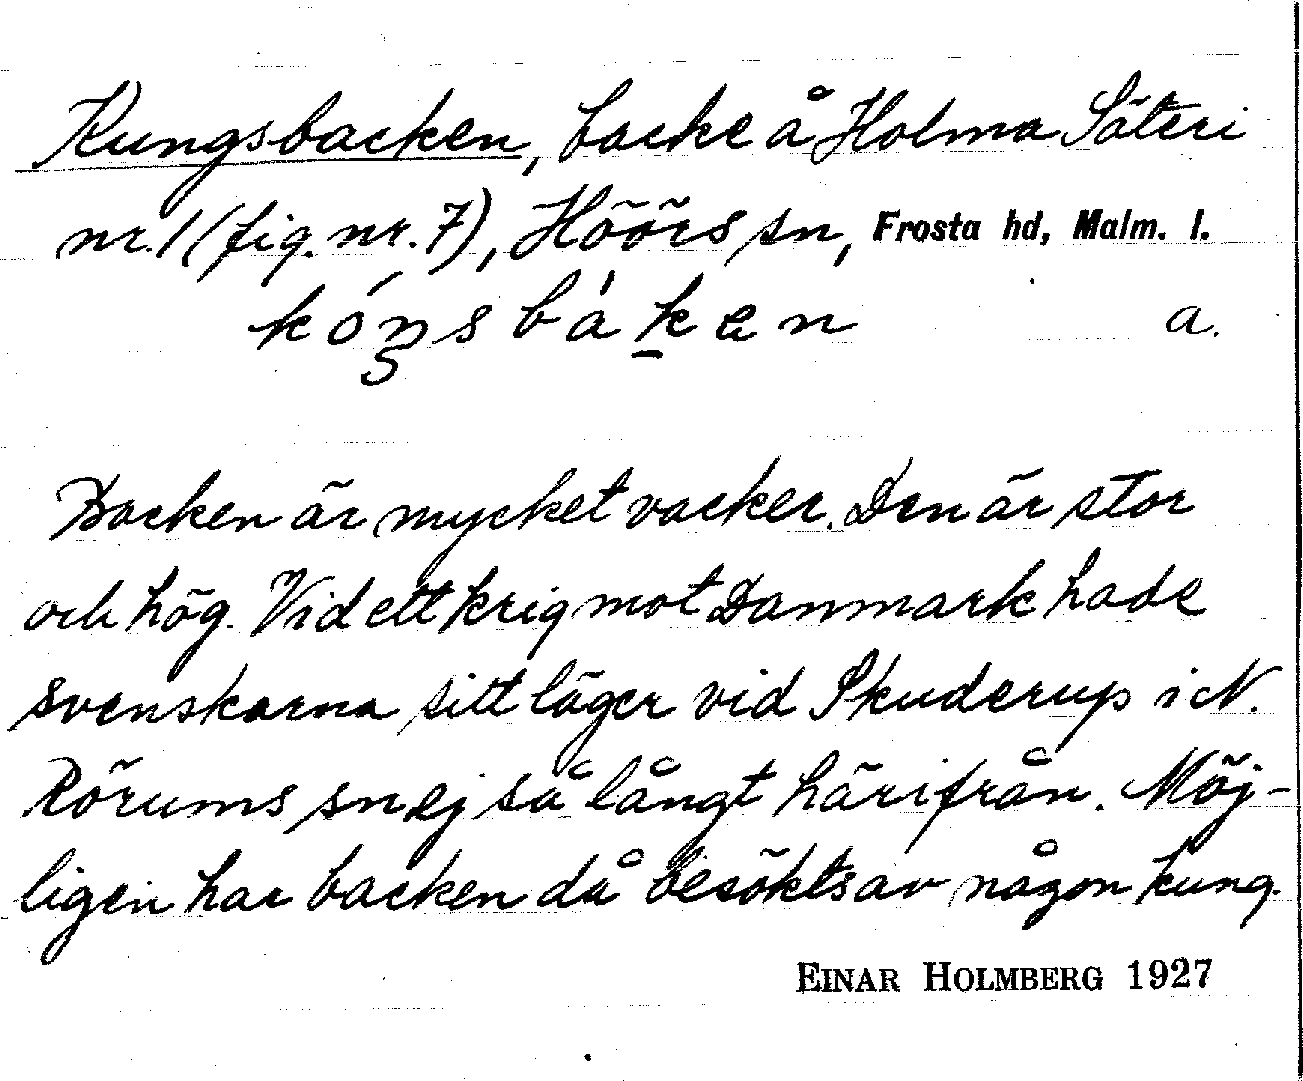 Kungsbacken, backe å Holma Säteri
nr. 1 (fig. nr. 7), Höörs sn, Frosta hd, Malm. l.
kóŋsbàken a.
Backen är mycket vacker. Den är stor
och hög. Vid ett krig mot Danmark hade
svenskarna sitt läger vid Skuderup i N.
Rörums sn ej så långt härifrån. Möj-
ligen har backen då besökts av någon kung.
EINAR HOLMBERG 1927